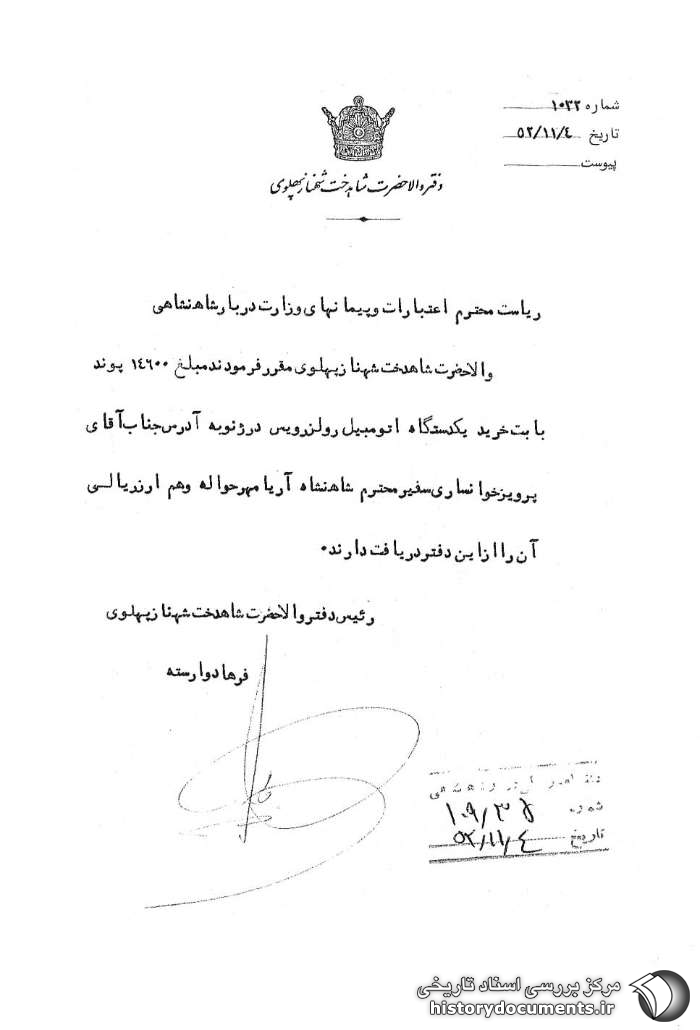 شماره ۱۰۳۲
تاریخ ۵۲/۱۱/۴
پیوست
دفتر والاحضرت شاهدخت شهناز پهلوی
ریاست محترم اعتبارات و پیمانهای وزارت دربار شاهنشاهی
والاحضرت شاهدخت شهناز پهلوی مقرر فرمودند مبلغ ۱۴۶۰۰ پوند
بابت خرید یکدستگاه اتومبیل رولزرویس در ژنو به آدرس جناب آقای
پرویز خوانساری سفیر محترم شاهنشاه آریامهر حواله و هم ارز ریالی
آن را از این دفتر دریافت دارند۰
رئیس دفتر والاحضرت شاهدخت شهناز پهلوی
فرهاد وارسته
شماره ۱۰۹/۳۵
تاریخ ۵۲/۱۱/۴
مرکز بررسی اسناد تاریخی
historydocuments.ir